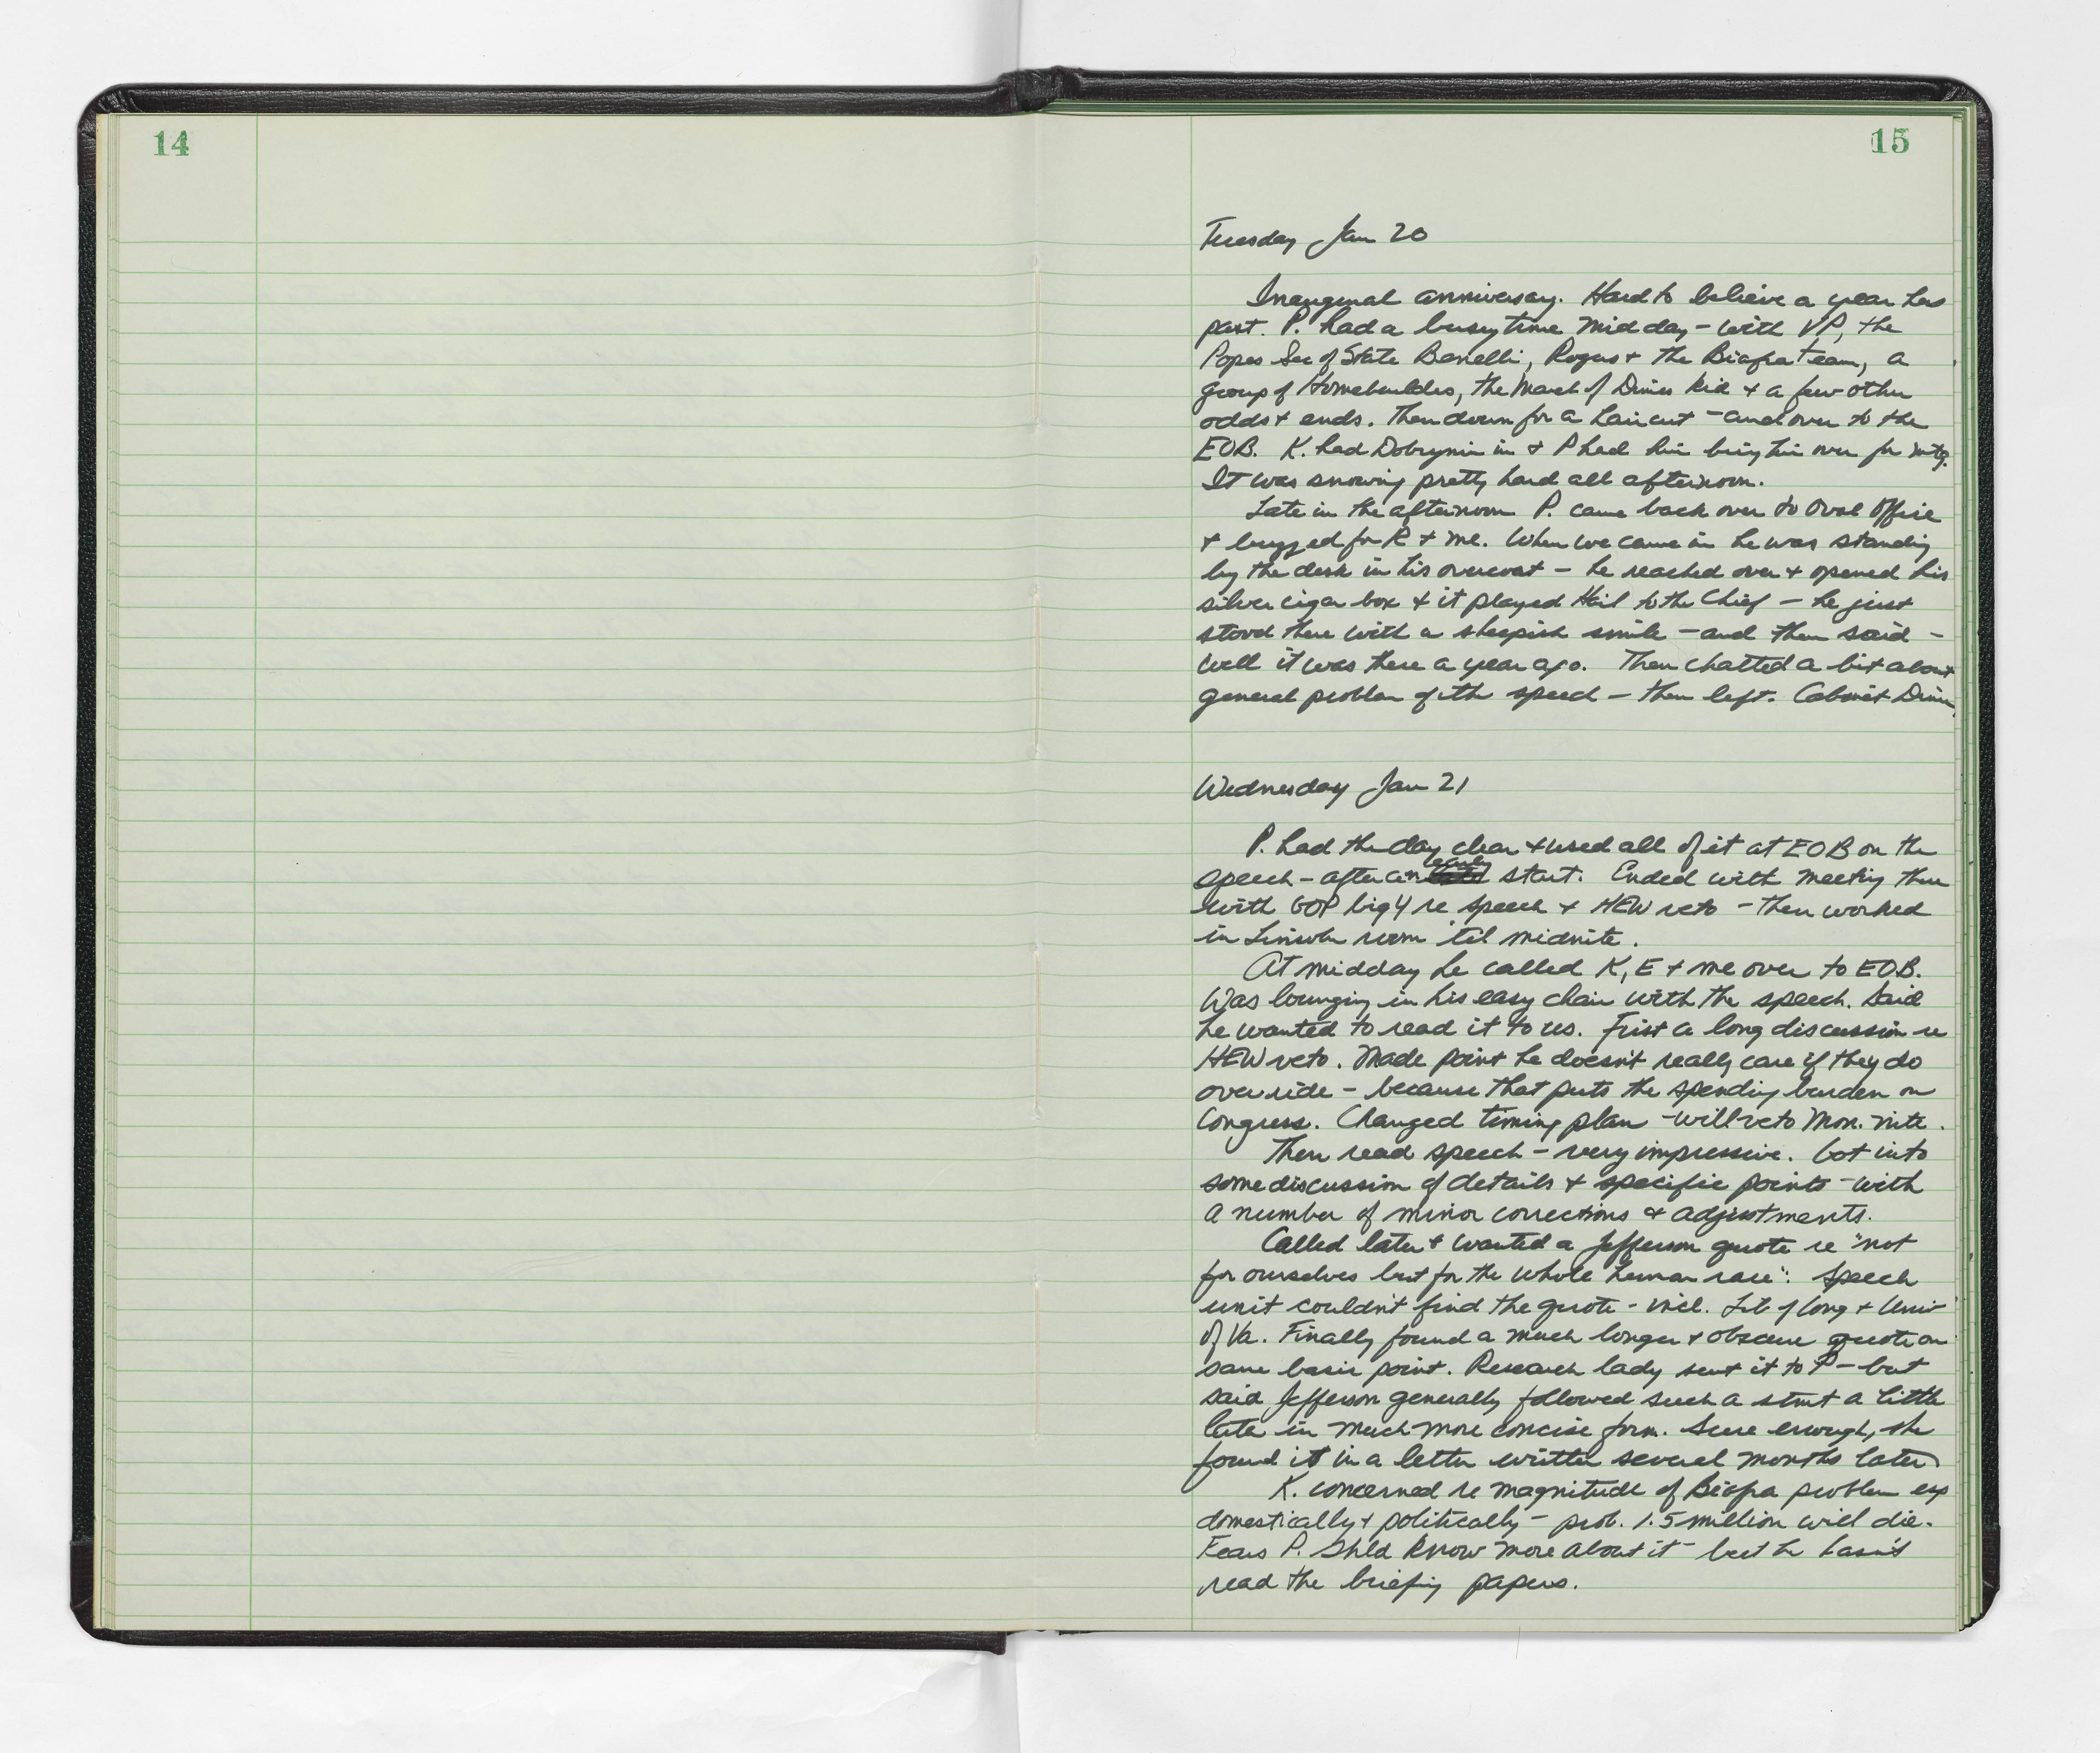 14
15
Tuesday Jan 20
Inaugural anniversary. Hard to believe a year has
past. P. had a busy time mid day - with VP, the
Popes Sec of State Benelli, Rogers + the Biafra team, a
group of Homebuilders, the March of Dimes kid + a few other
odds + ends. Then down for a haircut - and over to the
EOB. K. had Dobrynin in + P had him bring him over for mtg.
It was snowing pretty hard all afternoon.
Late in the afternoon P. came back over to Oval Office
+ buzzed for K + me. When we came in he was standing
by the desk in his overcoat - he reached over + opened his
silver cigar box + it played Hail to the Chief - he just
stood there with a sheepish smile - and then said -
well it was there a year ago. Then chatted a bit about
general problem of the speech - then left. Cabinet Dinner.
Wednesday Jan 21
P. had the day clear + used all of it at EOB on the
speech - after an early start. Ended with meeting there
with GOP big 4 re speech + HEW veto - then worked
in Lincoln room 'til midnite.
At midday he called K, E + me over to EOB.
Was lounging in his easy chair with the speech. Said
he wanted to read it to us. First a long discussion re
HEW veto. Made point he doesn't really care if they do
override - because that puts the spending burden on
Congress. Changed timing plan - will veto Mon. nite.
Then read speech - very impressive. Got into
some discussion of details + specific points - with
a number of minor corrections + adjustments.
Called later + wanted a Jefferson quote re "not
for ourselves but for the whole human race". Speech
unit couldn't find the quote - incl. Lib of Cong + Univ
of Va. Finally found a much longer + obscure quote on
same basic point. Research lady sent it to P - but
said Jefferson generally followed such a stmt a little
later in much more concise form. Sure enough, she
found it in a letter written several months later.
K. concerned re magnitude of Biafra problem esp
domestically + politically - prob. 1.5 million will die.
Fears P. shld know more about it - but he hasn't
read the briefing papers.